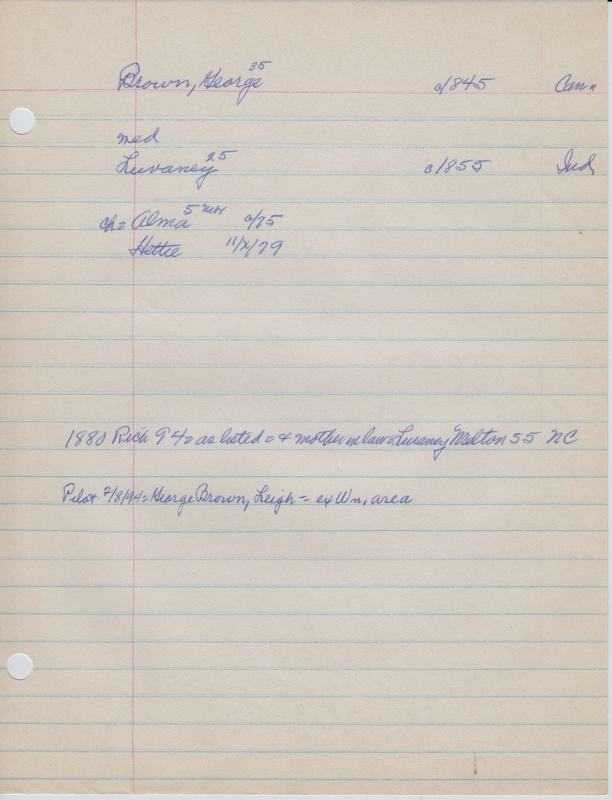 Brown, George 35 c/845 Can.
med
Luvaney 25 c/855 Ind.
ch = Alma 5 Nebr c/75
Hettie 11/x/79
1880 Rich 94 = as listed = & mother in law = Luvaney Melton 55 NC
Pilot 2/8/94 = George Brown, Leigh = ex Wn. area